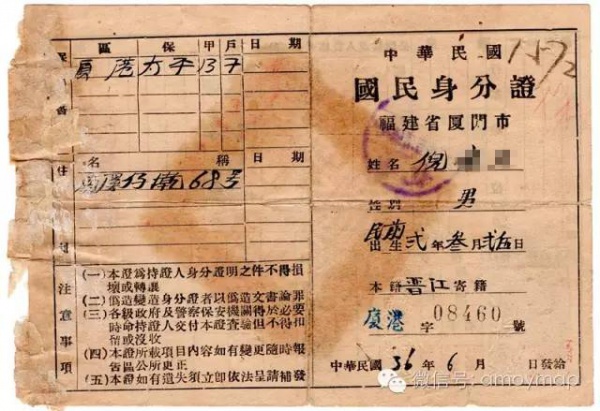 區 保 甲 戶 日 期
厦港太平 13 7
名 稱 日 期
68号
住
注意事項
(一)本證為持證人身分證明之件不得損
壞或轉讓
(二)偽造變造身分證者以偽造文書論罪
(三)各級政府及警察保安機關得於必要
時命持證人交付本證查驗但不得扣
留或沒收
(四)本證所載項目內容如有變更隨時報
告區公所更正
(五)本證如有遺失須立即依法呈請補發
中華民國
國民身分證
福建省厦門市
姓名 倪
性別 男
民前 出生 弍年叁月弍伍日
本籍 晋江 寄籍
廈港 字 08460 號
中華民國 36 年 6 月 日發給
微信号: amoymap